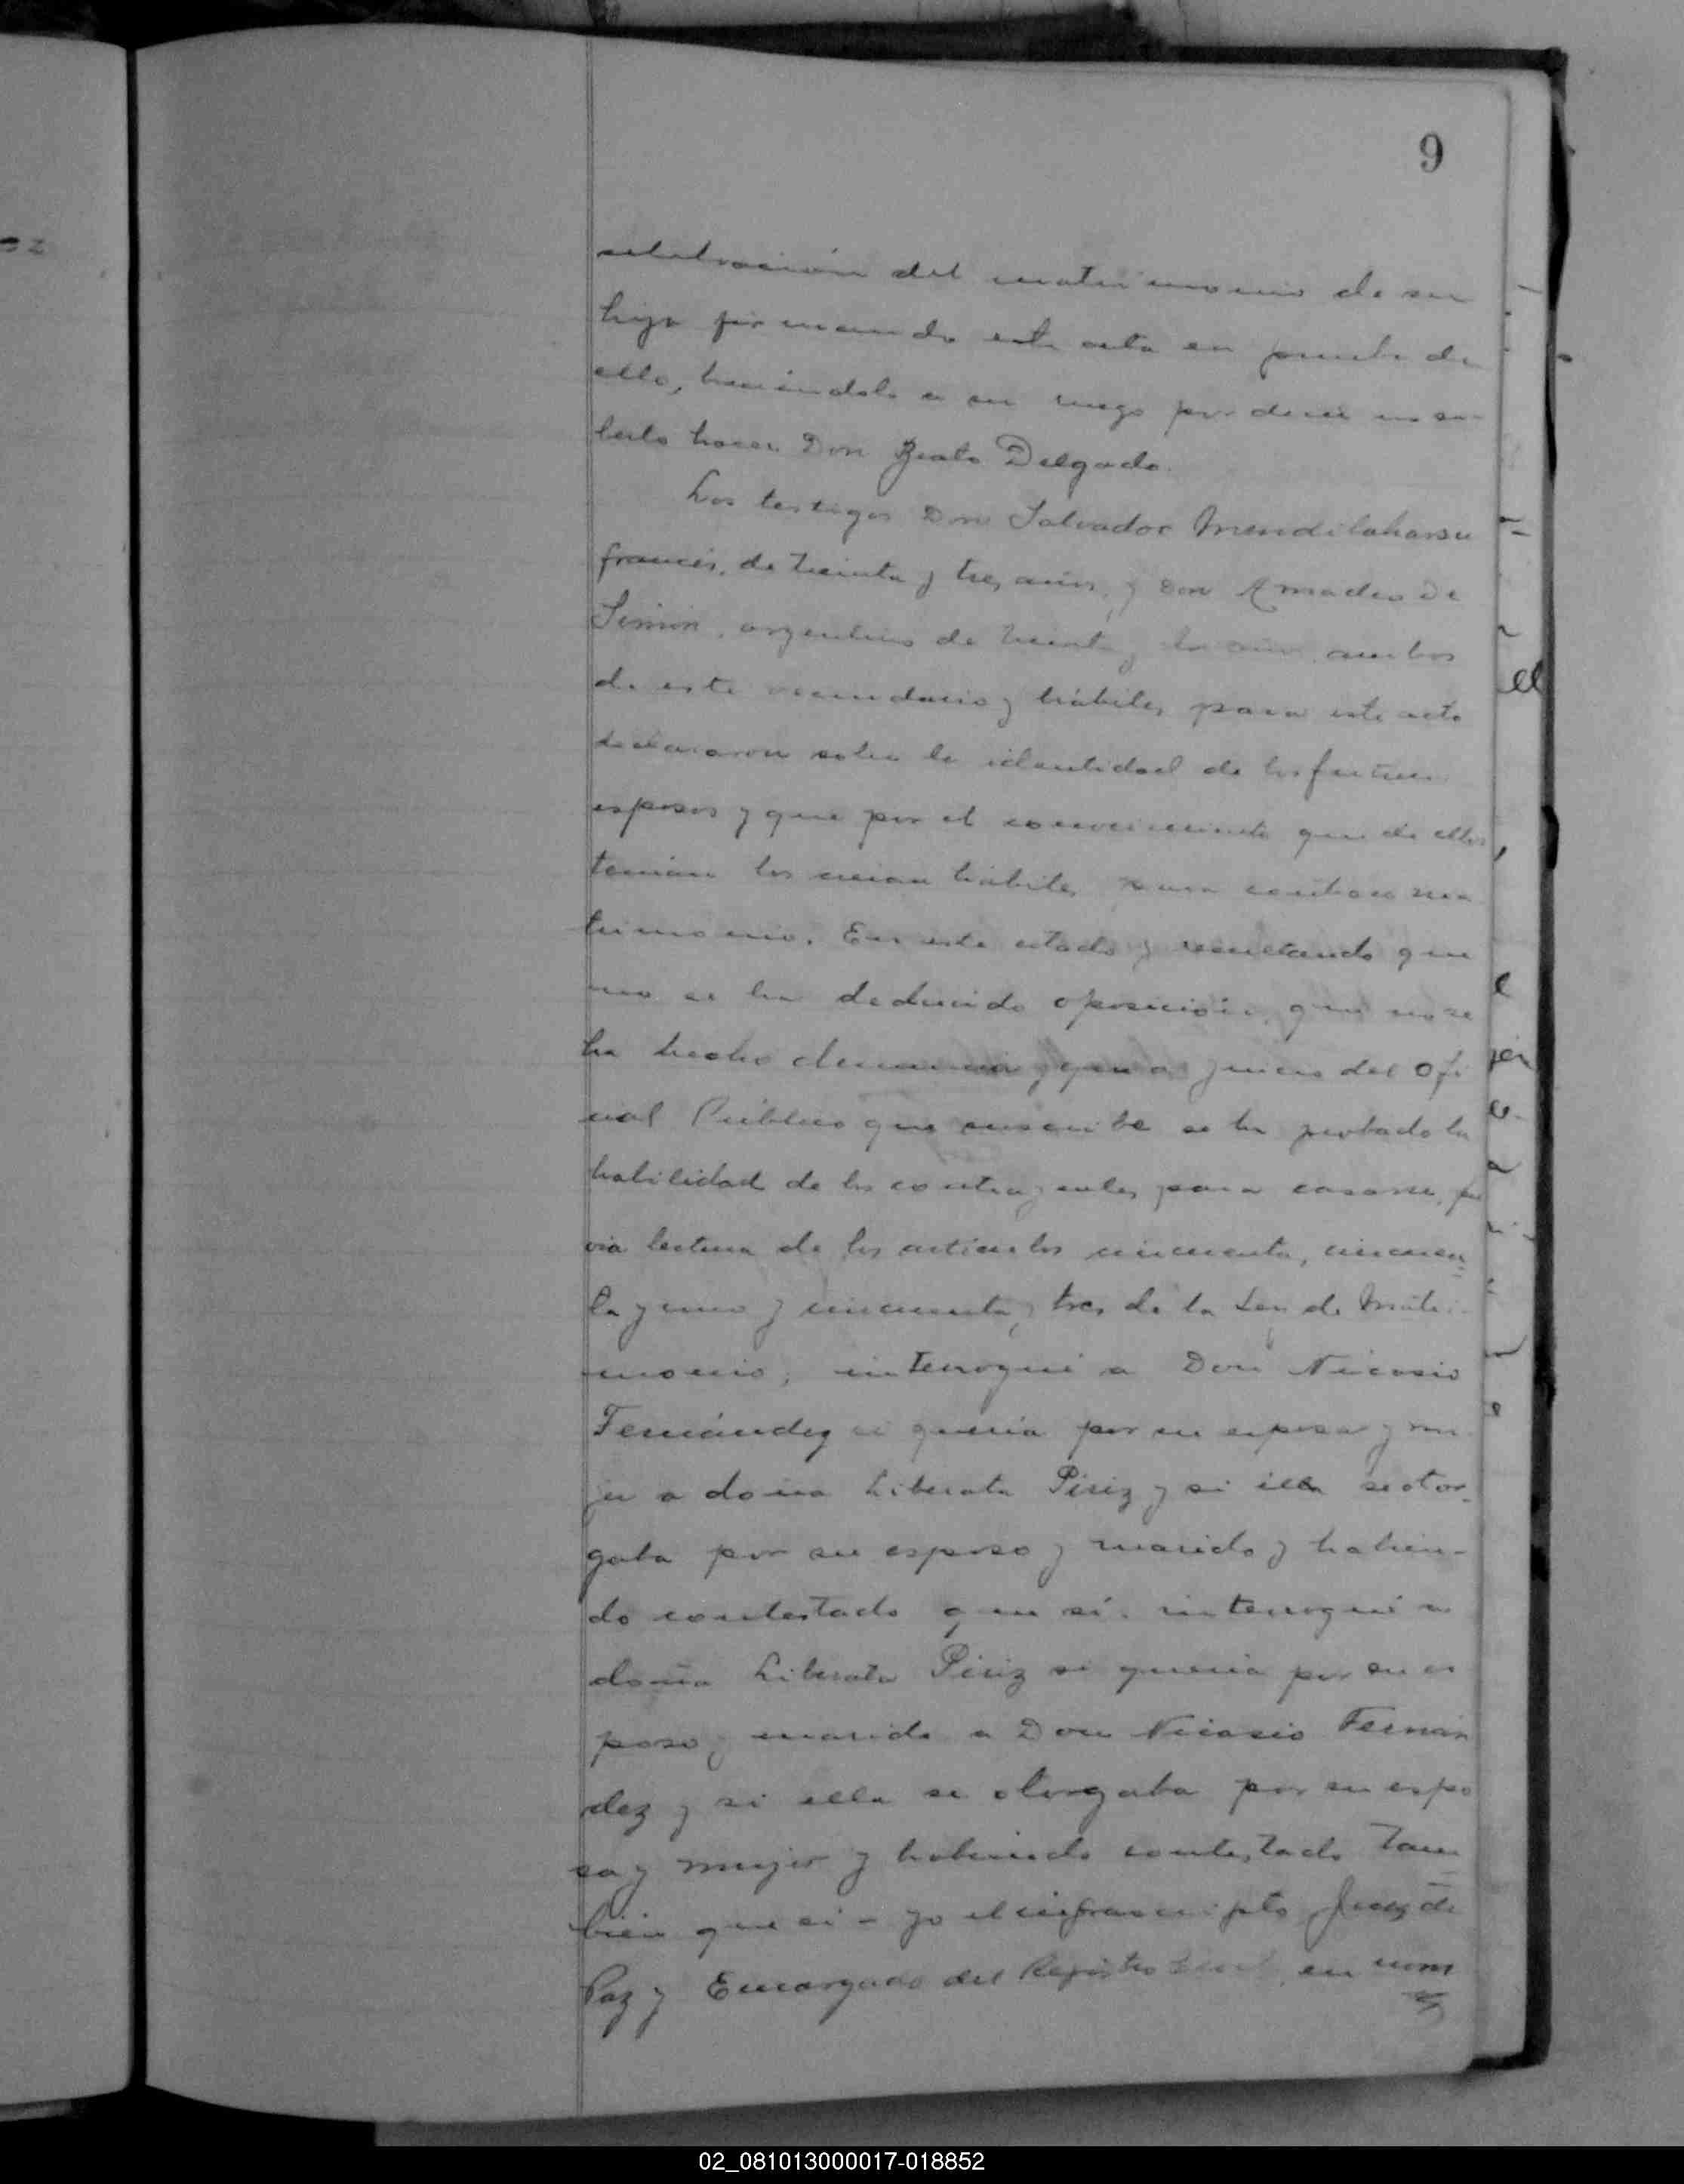 9
celebración del matrimonio de su
hija firmando esta acta en prueba de
ello, haciéndolo a su ruego por decir no sa-
berlo hacer Don Beato Delgado.
Los testigos Don Salvador Mendilaharsu
francés, de treinta y tres años, y Don Amadeo De
Simón, argentino de treinta y dos años, ambos
de este vecindario y hábiles para este acto
declararon sobre la identidad de los futuros
esposos y que por el conocimiento que de ellos
tenían los creían hábiles para contraer ma
trimonio. En este estado y resultando que
no se ha deducido oposición, que no se
ha hecho denuncia y que a juicio del Ofi
cial Público que suscribe se ha probado la
habilidad de los contrayentes para casarse, pre
via lectura de los artículos cincuenta, cincuen
ta y uno y cincuenta y tres de la Ley de Matri-
monio, interrogué a Don Nicasio
Fernández si quería por su esposa y mu
jer a doña Liberata Píriz y si él se otor-
gaba por su esposo y marido y habien-
do contestado que sí, interrogué a
doña Liberata Píriz si quería por su es
poso y marido a Don Nicasio Fernán
dez y si ella se otorgaba por su espo
sa y mujer y habiendo contestado tam
bién que sí - yo el infrascripto Juez de
Paz y Encargado del Registro Civil, en nom
el
02_081013000017-018852